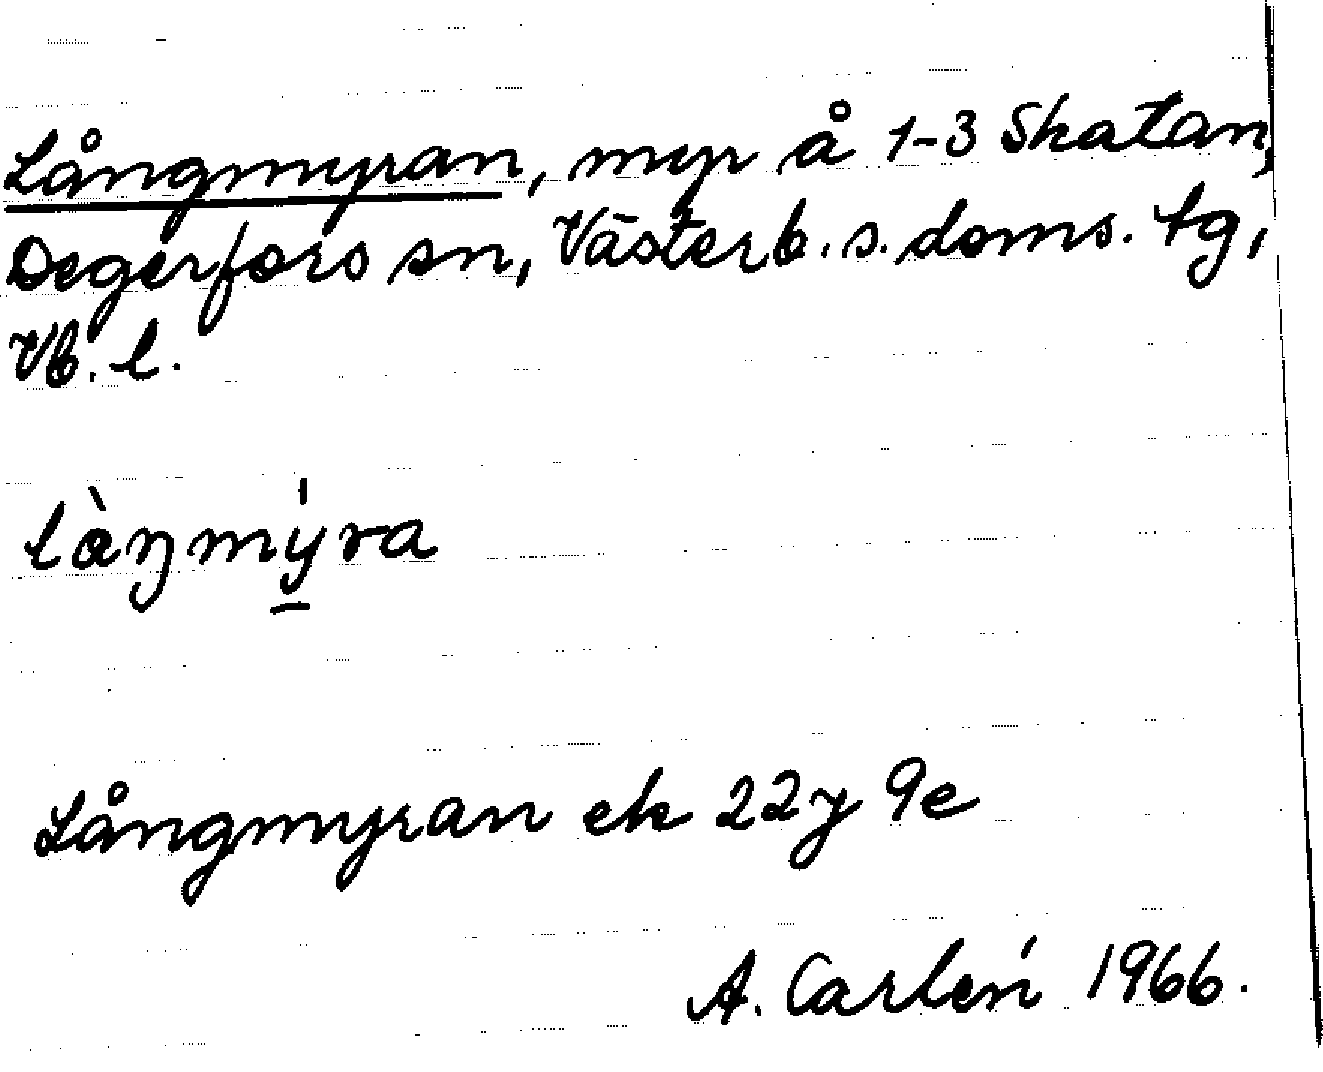 Långmyran, myr å 1-3 Skatan,
Degerfors sn, Västerb. s. doms. tg,
Vb. l.
làŋmý̱ra
Långmyran ek 22y 9e
A. Carlén 1966.